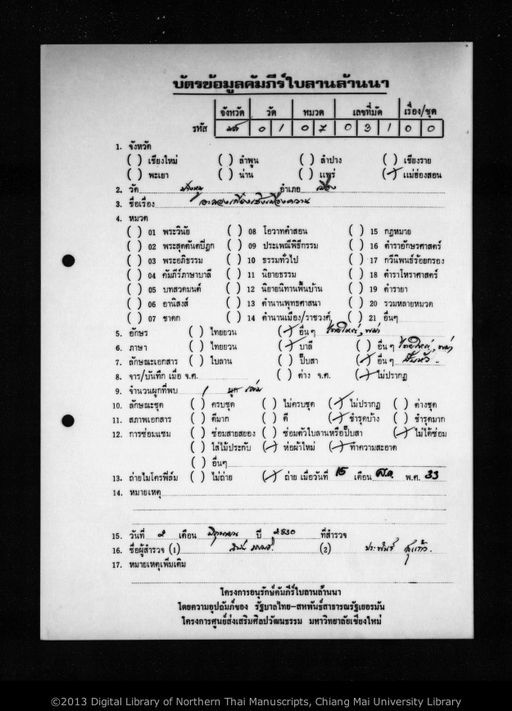 บัตรข้อมูลคัมภีร์ใบลานล้านนา
จังหวัด วัด หมวด เลขที่มัด เรื่อง/ชุด
รหัส มส 0 1 0 7 0 3 1 0 0
1. จังหวัด
( ) เชียงใหม่ ( ) ลำพูน ( ) ลำปาง ( ) เชียงราย
( ) พะเยา ( ) น่าน ( ) แพร่ (✓) แม่ฮ่องสอน
2. วัด ม่วยต่อ อำเภอ เมือง
3. ชื่อเรื่อง
4. หมวด
( ) 01 พระวินัย ( ) 08 โอวาทคำสอน ( ) 15 กฎหมาย
( ) 02 พระสุตตันตปิฎก ( ) 09 ประเพณีพิธีกรรม ( ) 16 ตำรายักษรศาสตร์
( ) 03 พระอภิธรรม ( ) 10 ธรรมทั่วไป ( ) 17 กวีนิพนธ์ร้อยกรอง
( ) 04 คัมภีร์ภาษาบาลี ( ) 11 นิยายธรรม ( ) 18 ตำราโหราศาสตร์
( ) 05 บทสวดมนต์ ( ) 12 นิยายนิทานพื้นบ้าน ( ) 19 ตำรายา
( ) 06 อานิสงส์ ( ) 13 ตำนานพุทธศาสนา ( ) 20 รวมหลายหมวด
( ) 07 ชาดก ( ) 14 ตำนานเมือง/ราชวงศ์ ( ) 21 อื่นๆ
5. อักษร ( ) ไทยยวน (✓) อื่นๆ ไทยใหญ่, พม่า
6. ภาษา ( ) ไทยยวน (✓) บาลี ( ) อื่นๆ ไทยใหญ่, พม่า
7. ลักษณะเอกสาร ( ) ใบลาน ( ) ปั๊บสา (✓) อื่นๆ
8. จาร/บันทึก เมื่อ จ.ศ. ( ) ต่าง จ.ศ. (✓) ไม่ปรากฏ
9. จำนวนผูกที่พบ 1 ผูก/เล่ม
10. ลักษณะชุด ( ) ครบชุด ( ) ไม่ครบชุด (✓) ไม่ปรากฏ ( ) ต่างชุด
11. สภาพเอกสาร ( ) ดีมาก ( ) ดี (✓) ชำรุดบ้าง ( ) ชำรุดมาก
12. การซ่อมแซม ( ) ซ่อมสายสยอง ( ) ซ่อมตัวใบลานหรือปั๊บสา (✓) ไม่ได้ซ่อม
( ) ใส่ไม้ประกับ (✓) ห่อผ้าใหม่ (✓) ทำความสะอาด
( ) อื่นๆ
13. ถ่ายไมโครฟิล์ม ( ) ไม่ถ่าย (✓) ถ่าย เมื่อวันที่ 15 เดือน ต.ค. พ.ศ. 33
14. หมายเหตุ
15. วันที่ ๙ เดือน ปี ๒๕๓๐ ที่สำรวจ
16. ชื่อผู้สำรวจ (1) (2) ประพันธ์ สุแก้ว.
17. หมายเหตุเพิ่มเติม
โครงการอนุรักษ์คัมภีร์ใบลานล้านนา
โดยความอุปถัมภ์ของ รัฐบาลไทย-สหพันธ์สาธารณรัฐเยอรมัน
โครงการศูนย์ส่งเสริมศิลปวัฒนธรรม มหาวิทยาลัยเชียงใหม่
©2013 Digital Library of Northern Thai Manuscripts, Chiang Mai University Library